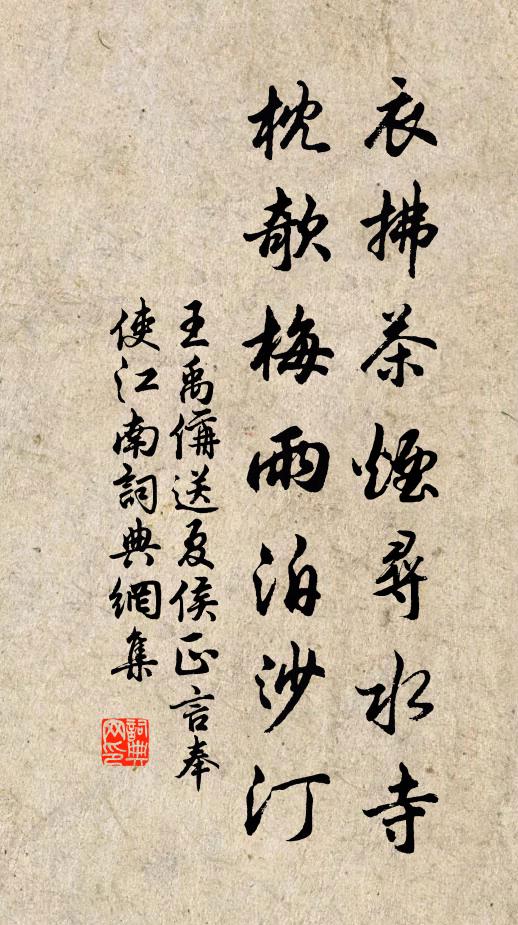 衣拂茶煙尋水寺
枕欹梅雨泊沙汀
王禹偁送夏侯正言奉
使江南詞典網集
詞典網印